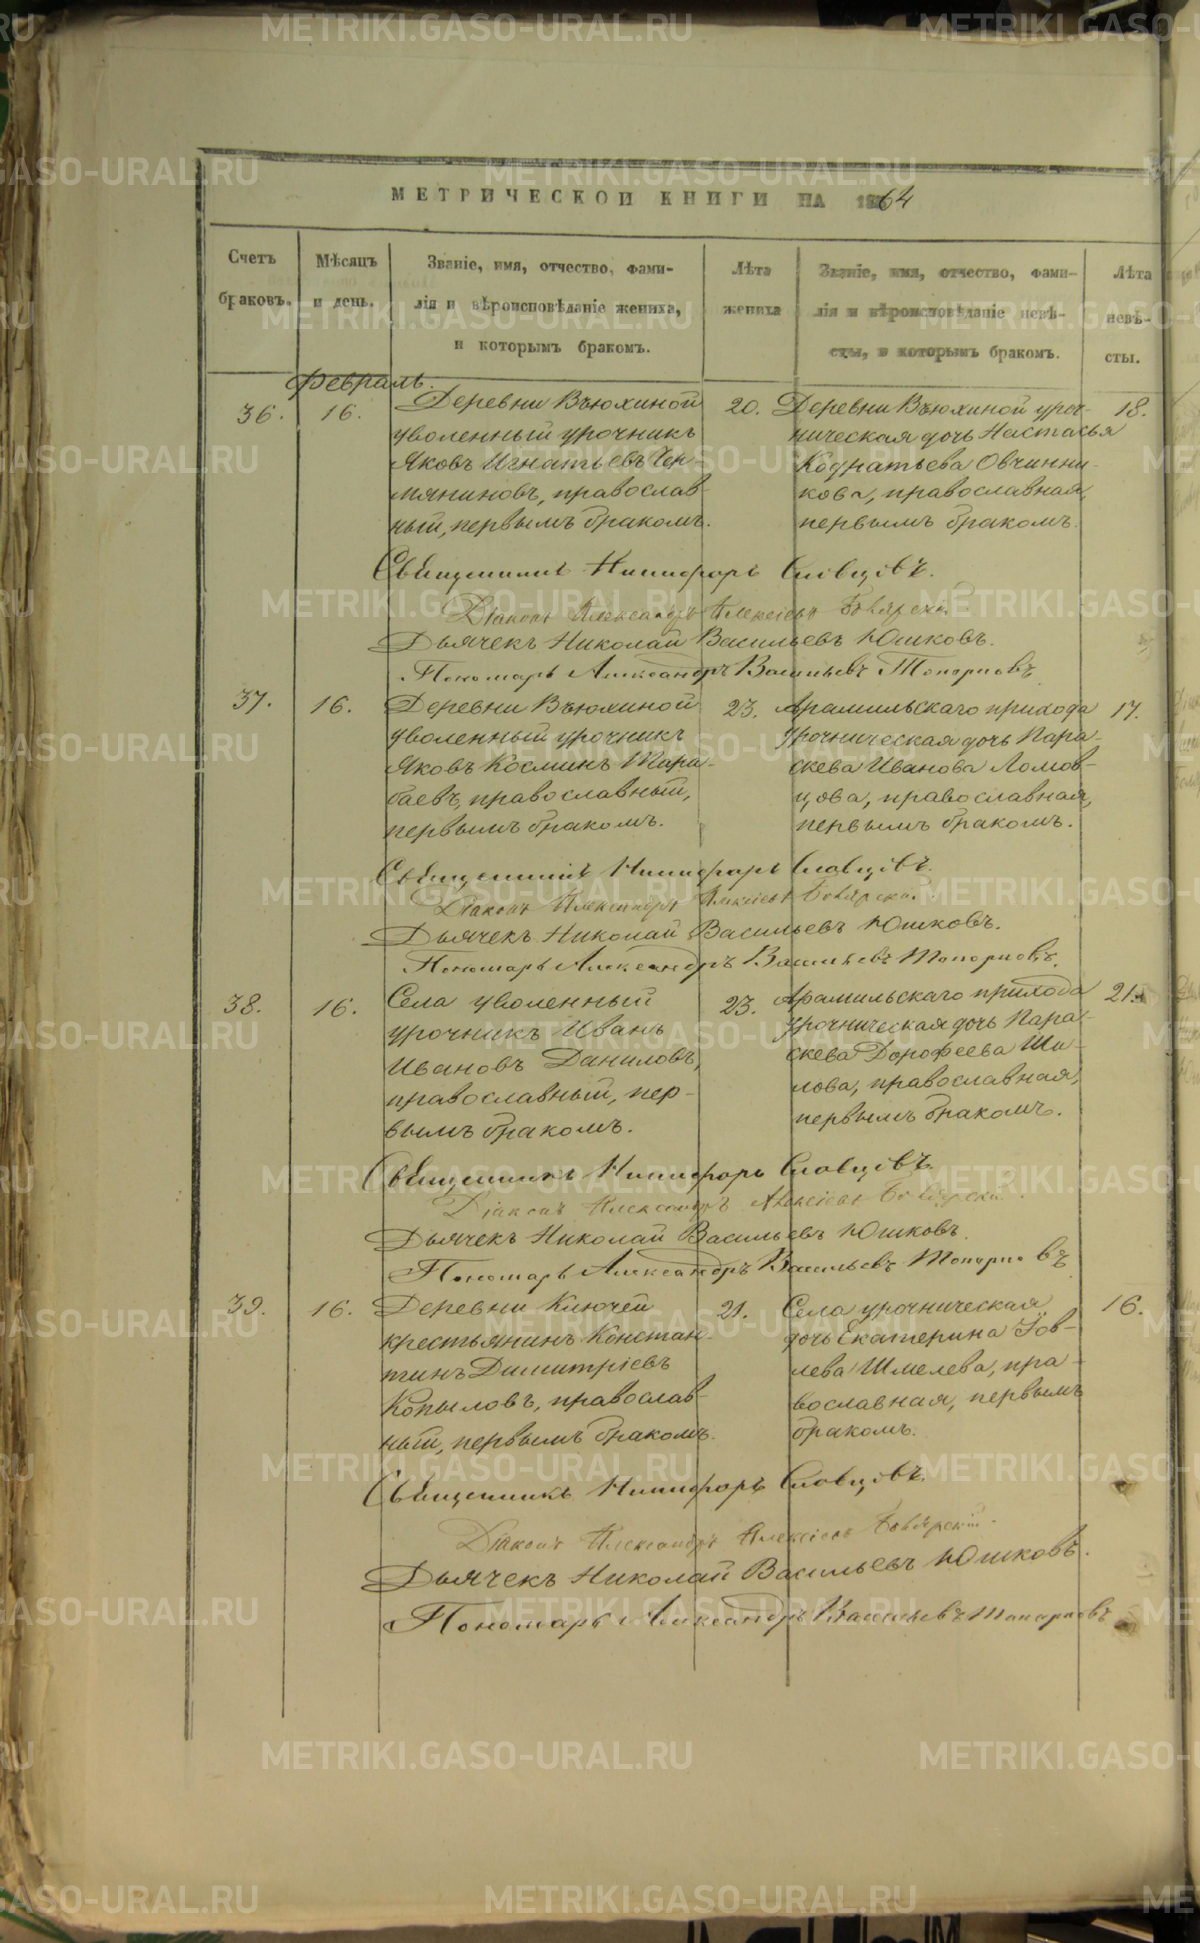 МЕТРИЧЕСКОЙ КНИГИ НА 1864
Счетъ браковъ.
Мѣсяцъ и день.
Званіе, имя, отчество, фами-
лія и вѣроисповѣданіе жениха,
и которымъ бракомъ.
Лѣта
жениха
Званіе, имя, отчество, фами-
лія и вѣроисповѣданіе невѣ-
сты, и которымъ бракомъ.
Лѣта
невѣ-
сты.
Февраль.
36. 16.
Деревни Вьюхиной
уволенный урочникъ
Яковъ Игнатьевъ Чер-
мяниновъ, православ-
ный, первымъ бракомъ.
20.
Деревни Вьюхиной уроч-
ническая дочь Настасья
Кодратьева Овчинни-
кова, православная,
первымъ бракомъ.
18.
Священникъ Никифоръ Словцовъ.
Діаконъ Александръ Алексіевъ
Дьячекъ Николай Васильевъ Юшковъ.
Пономарь Александръ Васильевъ Топорковъ
37. 16.
Деревни Вьюхиной
уволенный урочникъ
Яковъ Косминъ Тара-
баевъ, православный,
первымъ бракомъ.
23.
Арамильскаго прихода
урочническая дочь Пара-
скева Иванова Ломов-
цова, православная,
первымъ бракомъ.
17.
Священникъ Никифоръ Словцовъ.
Діаконъ Александръ Алексіевъ
Дьячекъ Николай Васильевъ Юшковъ.
Пономарь Александръ Васильевъ Топорковъ.
38. 16.
Села уволенный
урочникъ Иванъ
Ивановъ Даниловъ,
православный, пер-
вымъ бракомъ.
23.
Арамильскаго прихода
урочническая дочь Пара-
скева Дорофеева Ши-
лова, православная,
первымъ бракомъ.
21.
Священникъ Никифоръ Словцовъ.
Діаконъ Александръ Алексіевъ
Дьячекъ Николай Васильевъ Юшковъ.
Пономарь Александръ Васильевъ Топорковъ
39. 16.
Деревни Ключей
крестьянинъ Констан-
тинъ Димитріевъ
Копыловъ, православ-
ный, первымъ бракомъ.
21.
Села урочническая
дочь Екатерина Іов-
лева Шмелева, пра-
вославная, первымъ
бракомъ.
16.
Священникъ Никифоръ Словцовъ.
Діаконъ Александръ Алексіевъ
Дьячекъ Николай Васильевъ Юшковъ.
Пономарь Александръ Васильевъ Топорковъ
METRIKI.GASO-URAL.RU